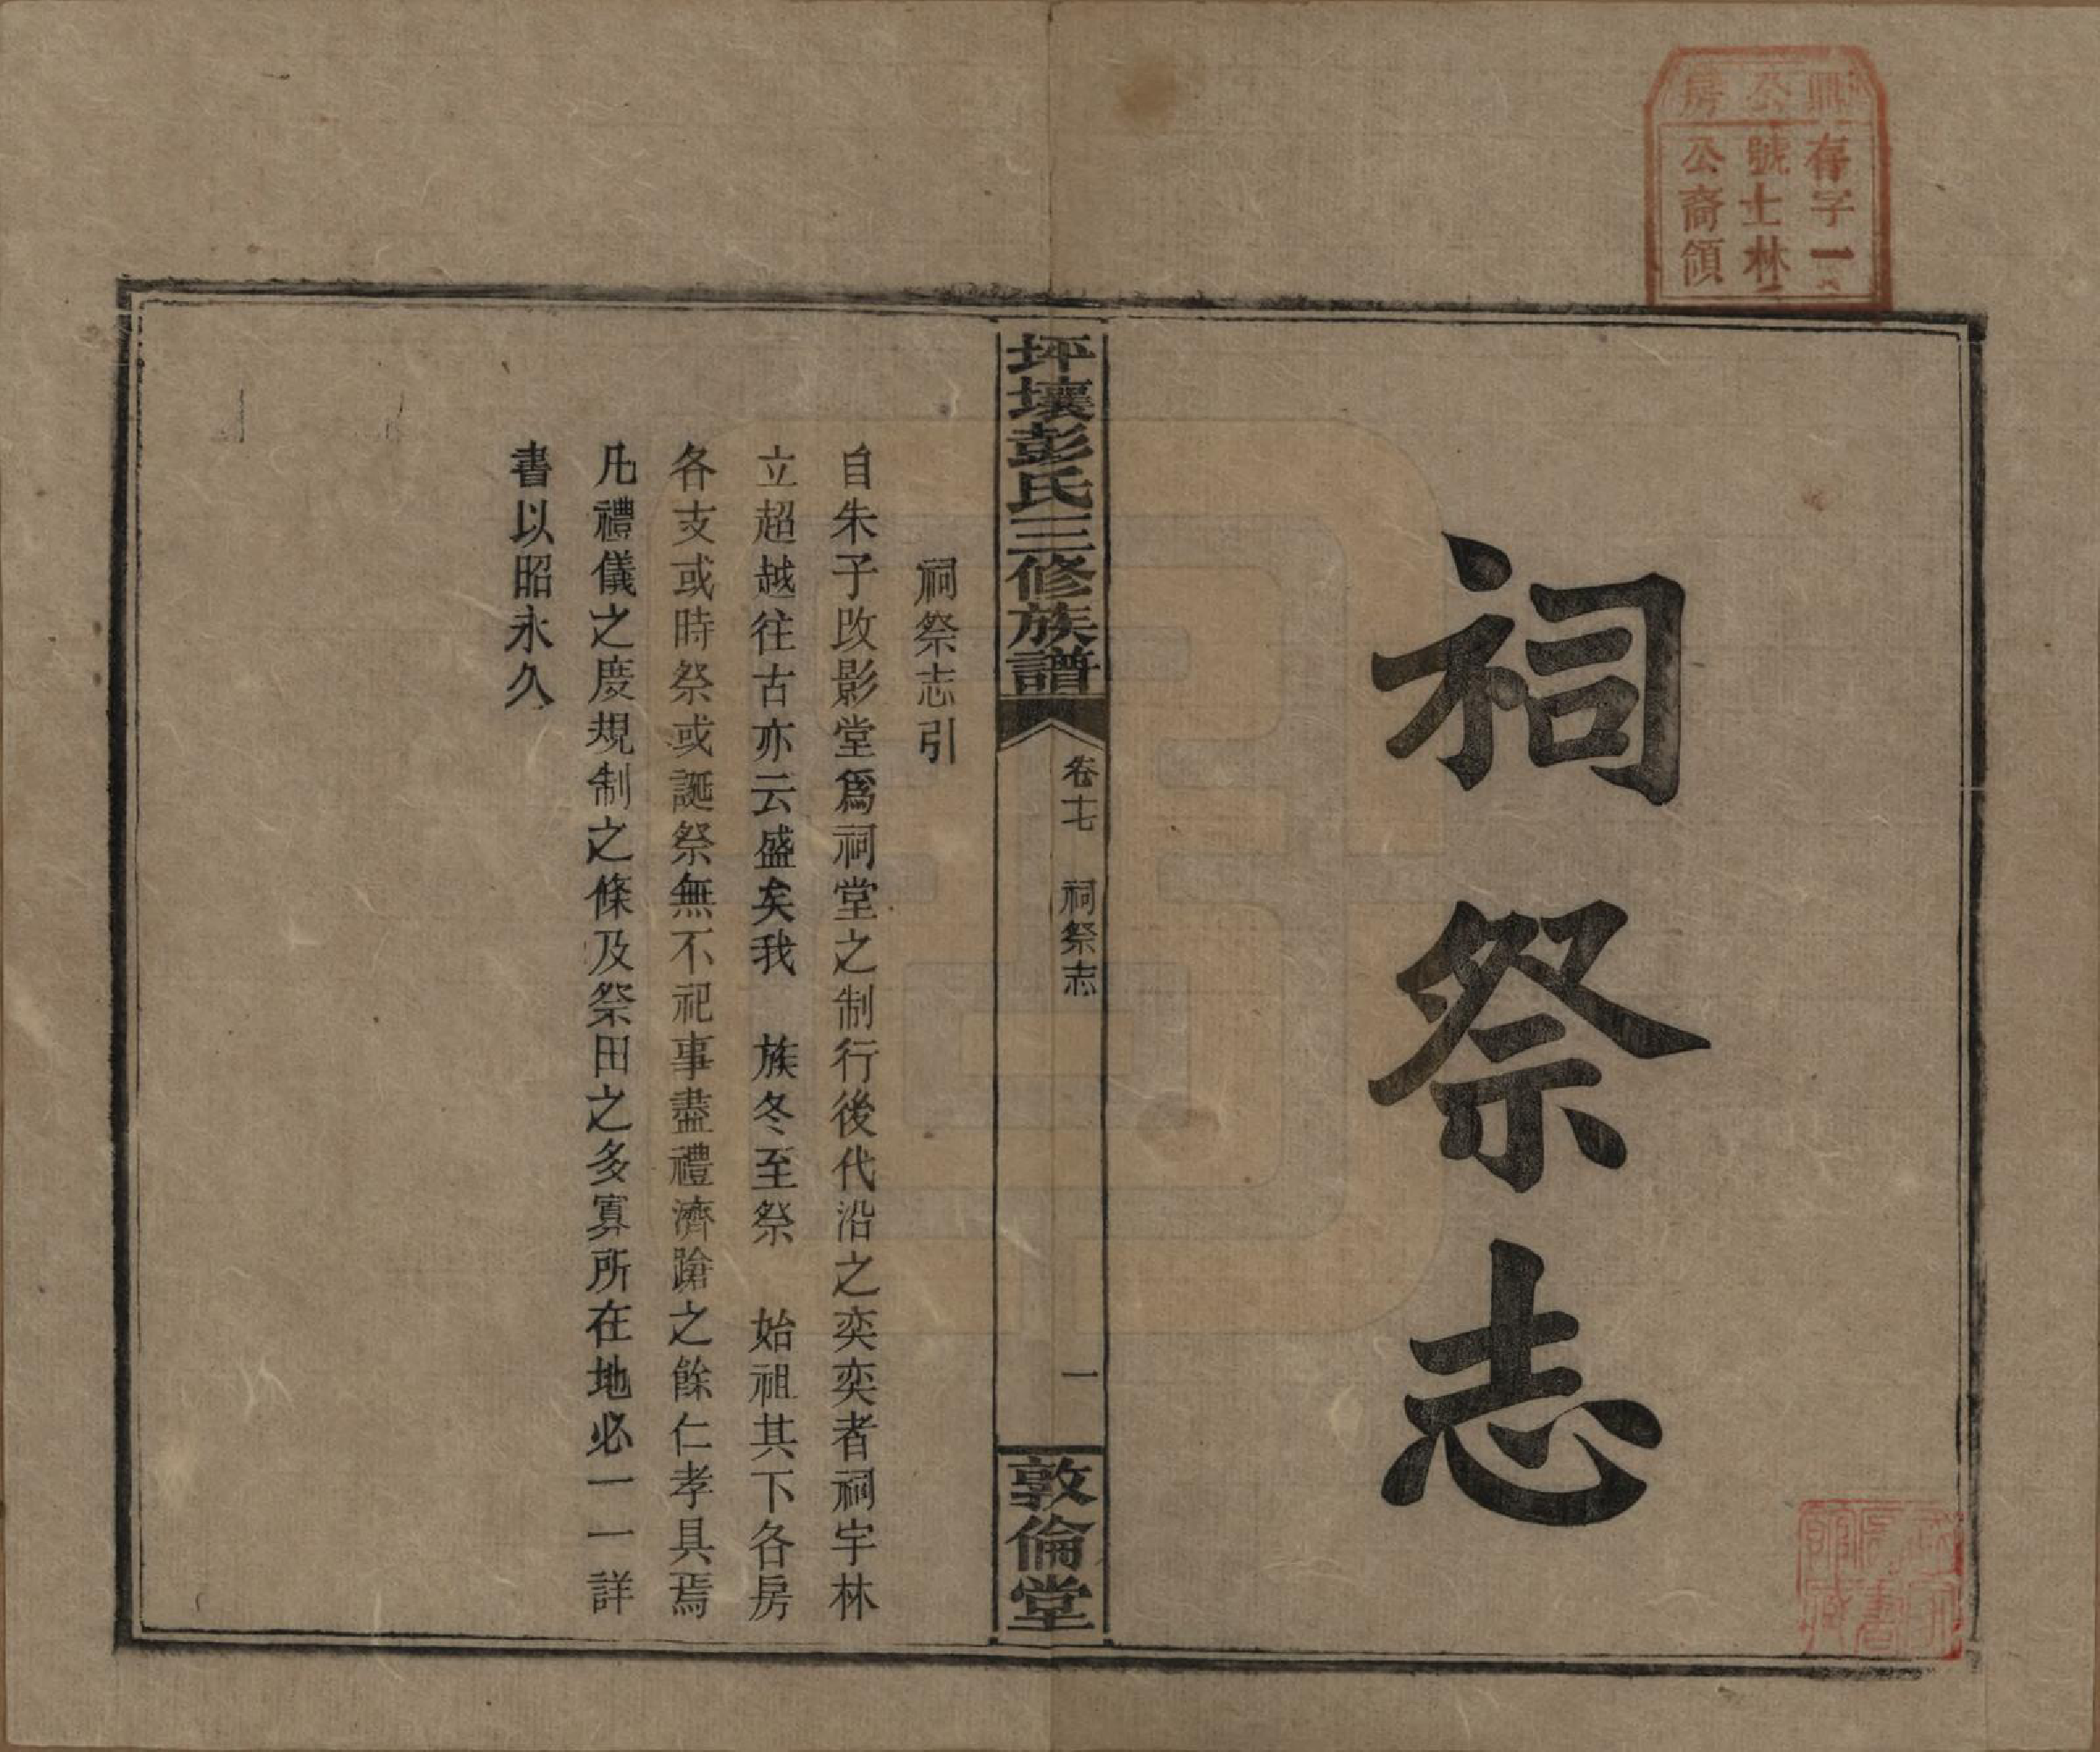 公房
存字一
號士林
公裔領
祠祭志
坪壤彭氏三修族譜
卷十七
祠祭志
一
敦倫堂
祠祭志引
自朱子改影堂爲祠堂之制行後代沿之奕奕者祠宇林
立超越往古亦云盛矣我 族冬至祭 始祖其下各房
各支或時祭或誕祭無不祀事盡禮濟蹌之餘仁孝具焉
凡禮儀之度規制之條及祭田之多寡所在地必一一詳
書以昭永久